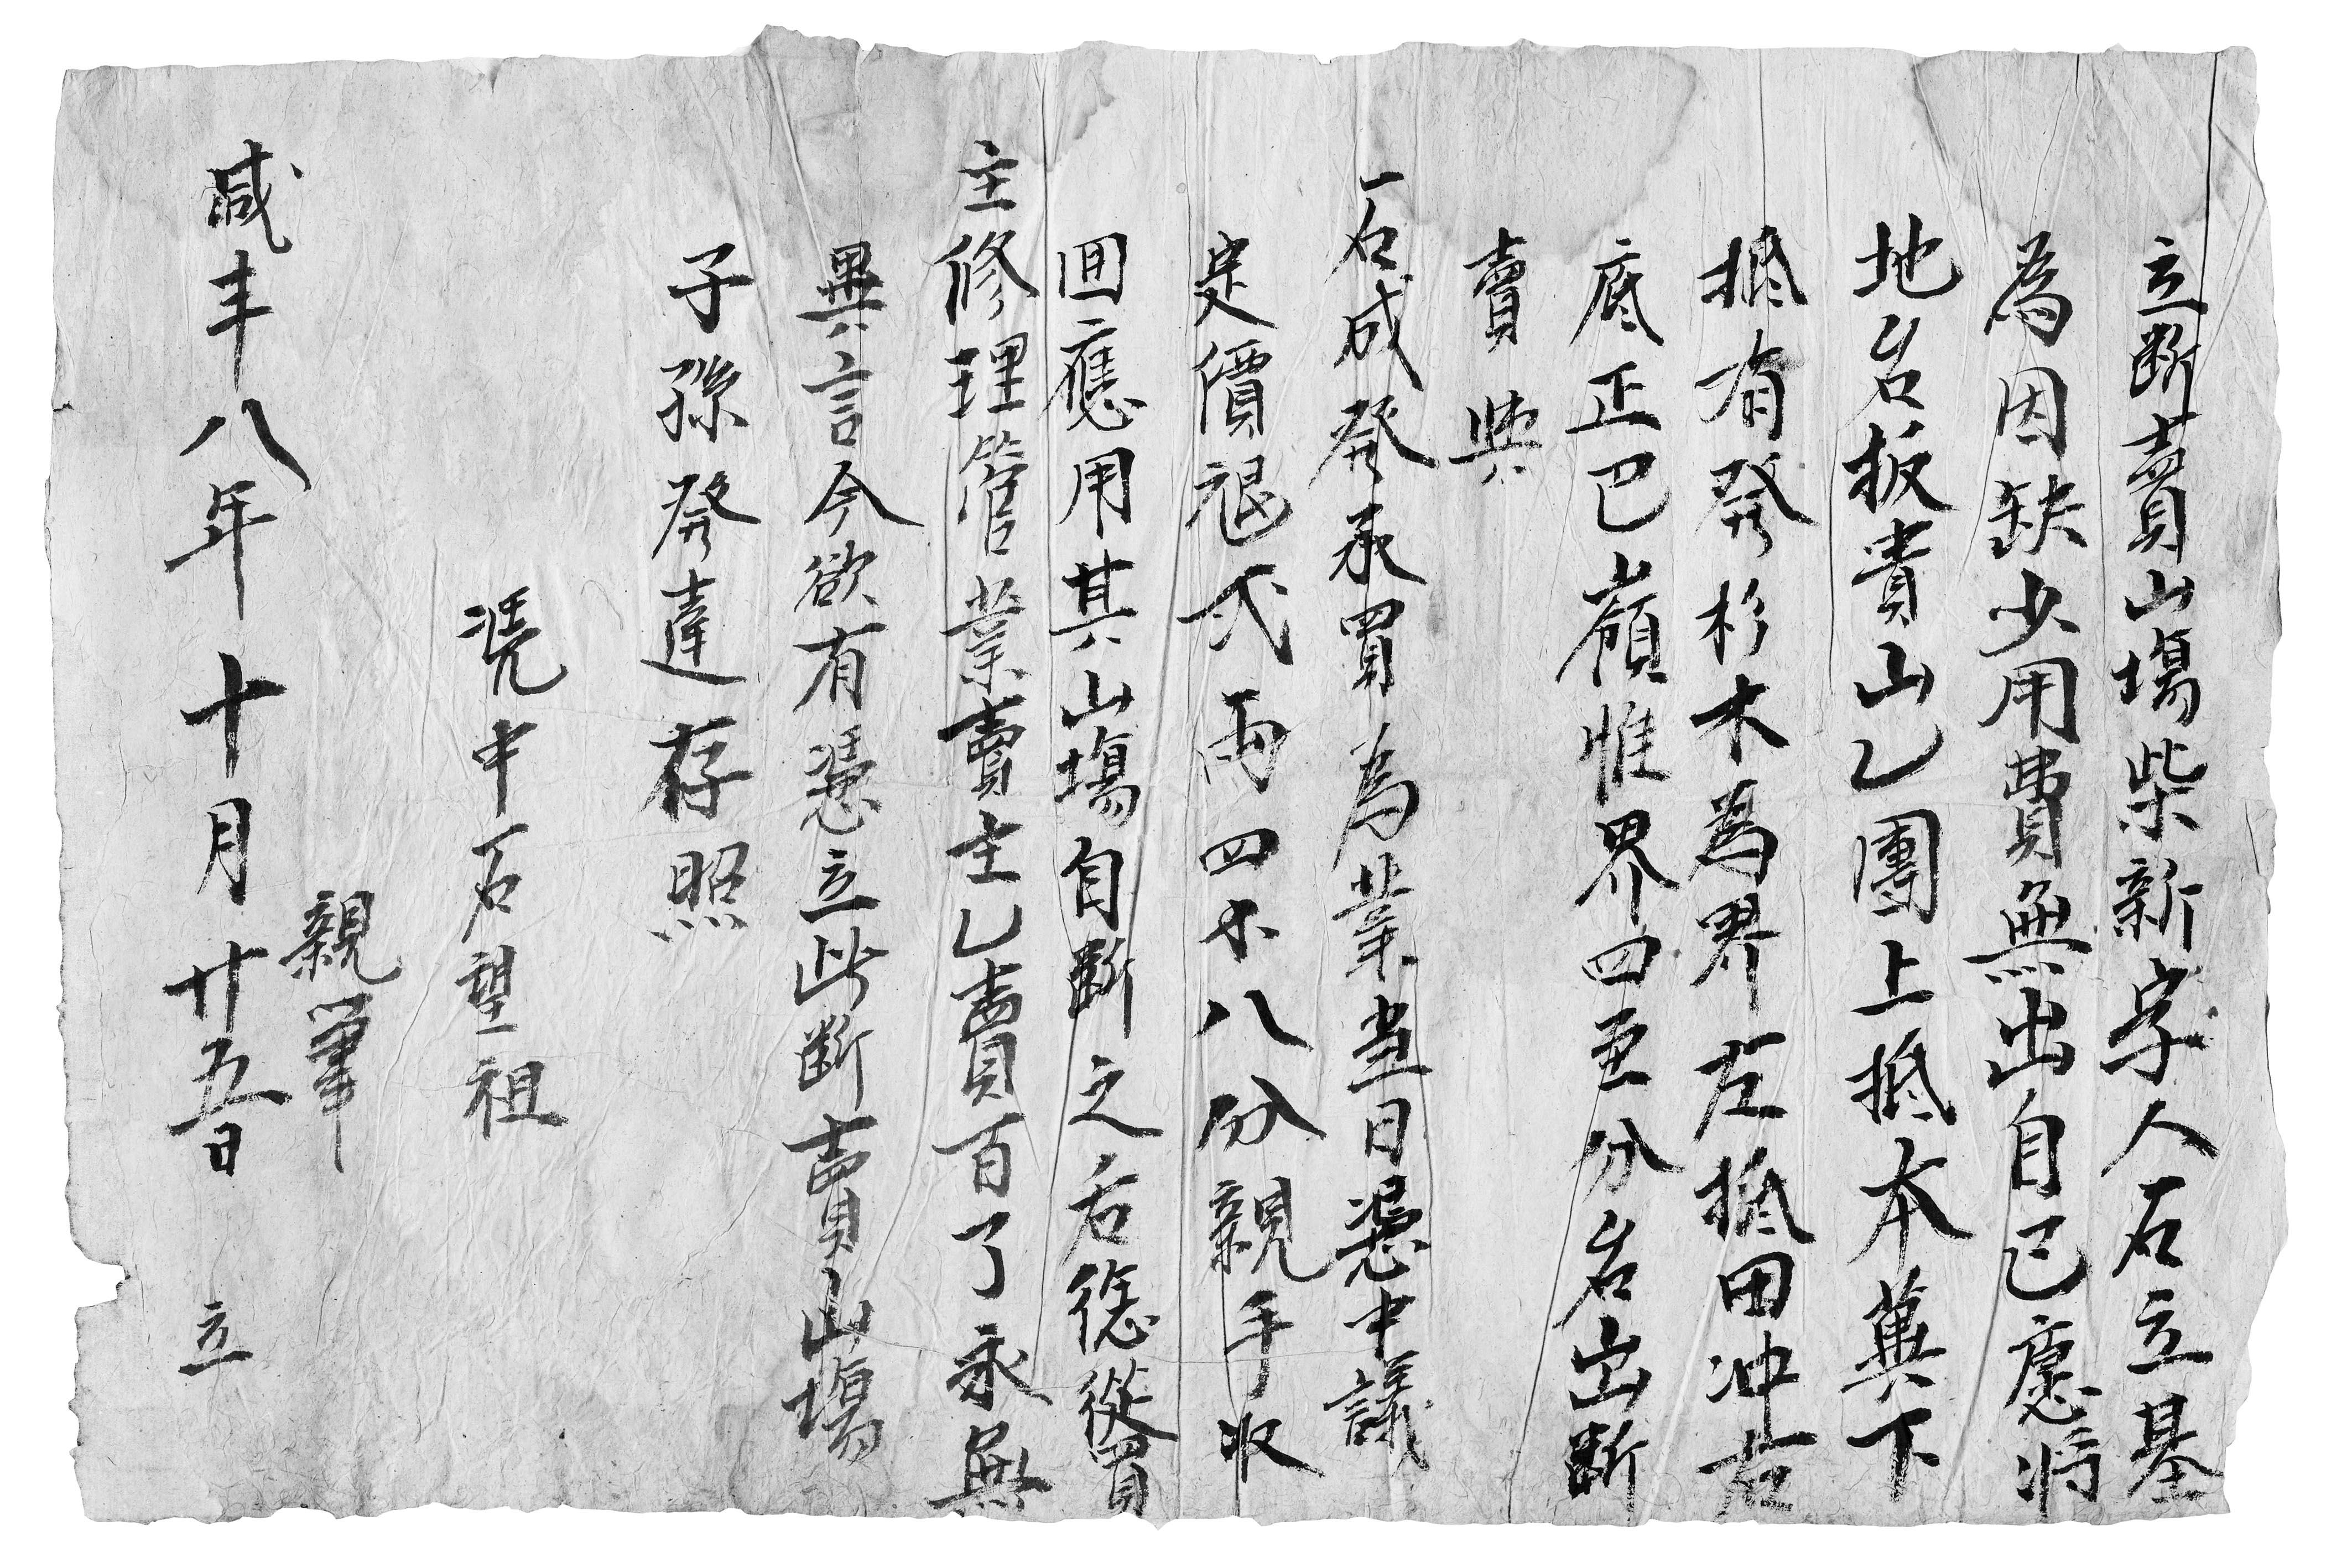 立断賣山塲柴新字人石立基
為因缺少用費無出自已愿将
地名板貴山乙團上抵本萬下
抵有發杉木為界左抵田冲右
底正巴嶺惟界四至分名出断
賣與
石成發承買為業当日憑中議
定價艮弍両四不八分親手收
回應用其山塲自断之后從買
主修理管業賣主乙賣百了永無
異言今欲有憑立此断賣山塲
子孫發達存照
凴中石望祖
親筆
咸丰八年十月廿五日立